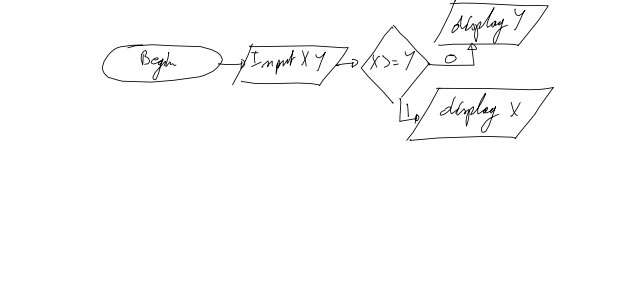 Begin
Input X Y
X>=Y
0
display Y
1
display X